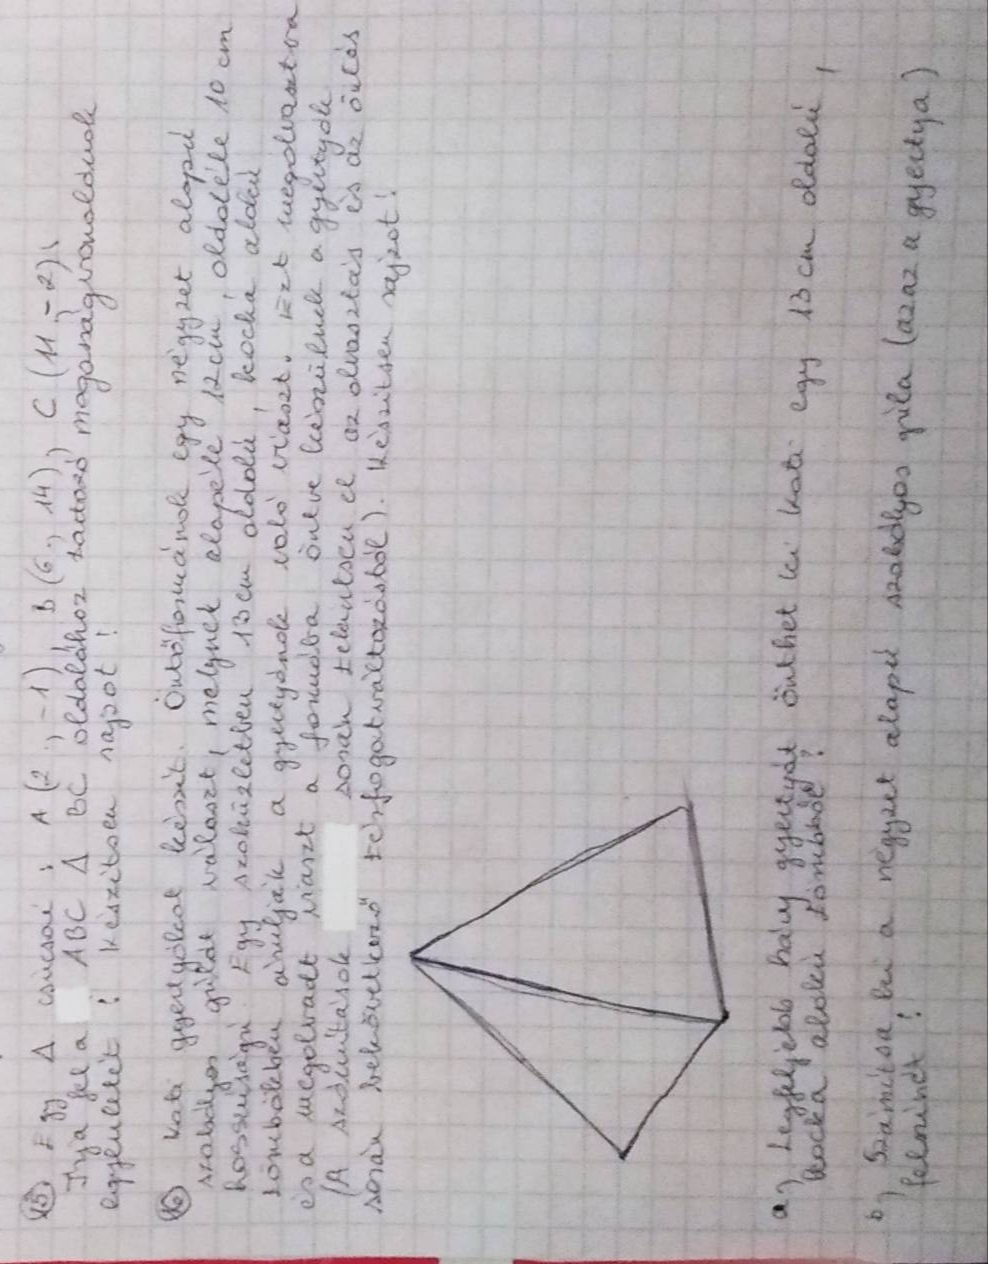 15) Egy Δ csúcsai : A (2 ; -1) B (6 ; 14) ; C (11 ; -2)
Írja fel a ABC Δ BC oldalához tartozó magasságvonalának
egyenletét ! Készítsen rajzot !
16) Kati gyertyákat készít. Öntőformának egy négyzet alapú
szabályos gúlát választ, melynek alapéle 12 cm, oldaléle 10 cm
hosszúságú. Egy szaküzletben 13 cm oldalú, kocka alakú
tömbökben árulják a gyertyának való viaszt. Ezt megolvasztva
és a megolvadt viaszt a formába öntve készülnek a gyertyák
(A számítások során tekintsen el az olvasztás és az öntés
során bekövetkező térfogatváltozástól). Készítsen rajzot !
a) Legfeljebb hány gyertyát önthet ki Kati egy 13 cm oldalú
kocka alakú tömbből ?
b) Számítsa ki a négyzet alapú szabályos gúla (azaz a gyertya)
felszínét !